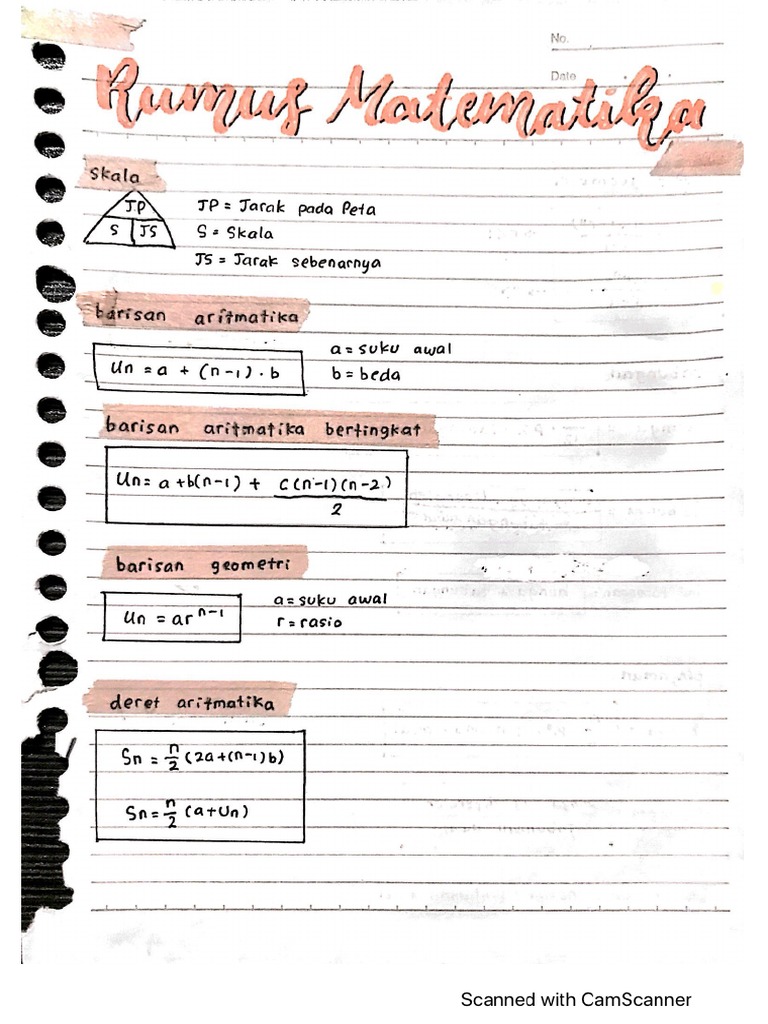 No.
Date
Rumus Matematika
skala
JP
S JS
JP = Jarak pada Peta
S = Skala
JS = Jarak sebenarnya
barisan aritmatika
Un = a + (n-1) . b
a = suku awal
b = beda
barisan aritmatika bertingkat
Un = a + b(n-1) + c(n-1)(n-2)
2
barisan geometri
Un = ar^n-1
a = suku awal
r = rasio
deret aritmatika
Sn = n/2 (2a+(n-1)b)
Sn = n/2 (a+Un)
Scanned with CamScanner